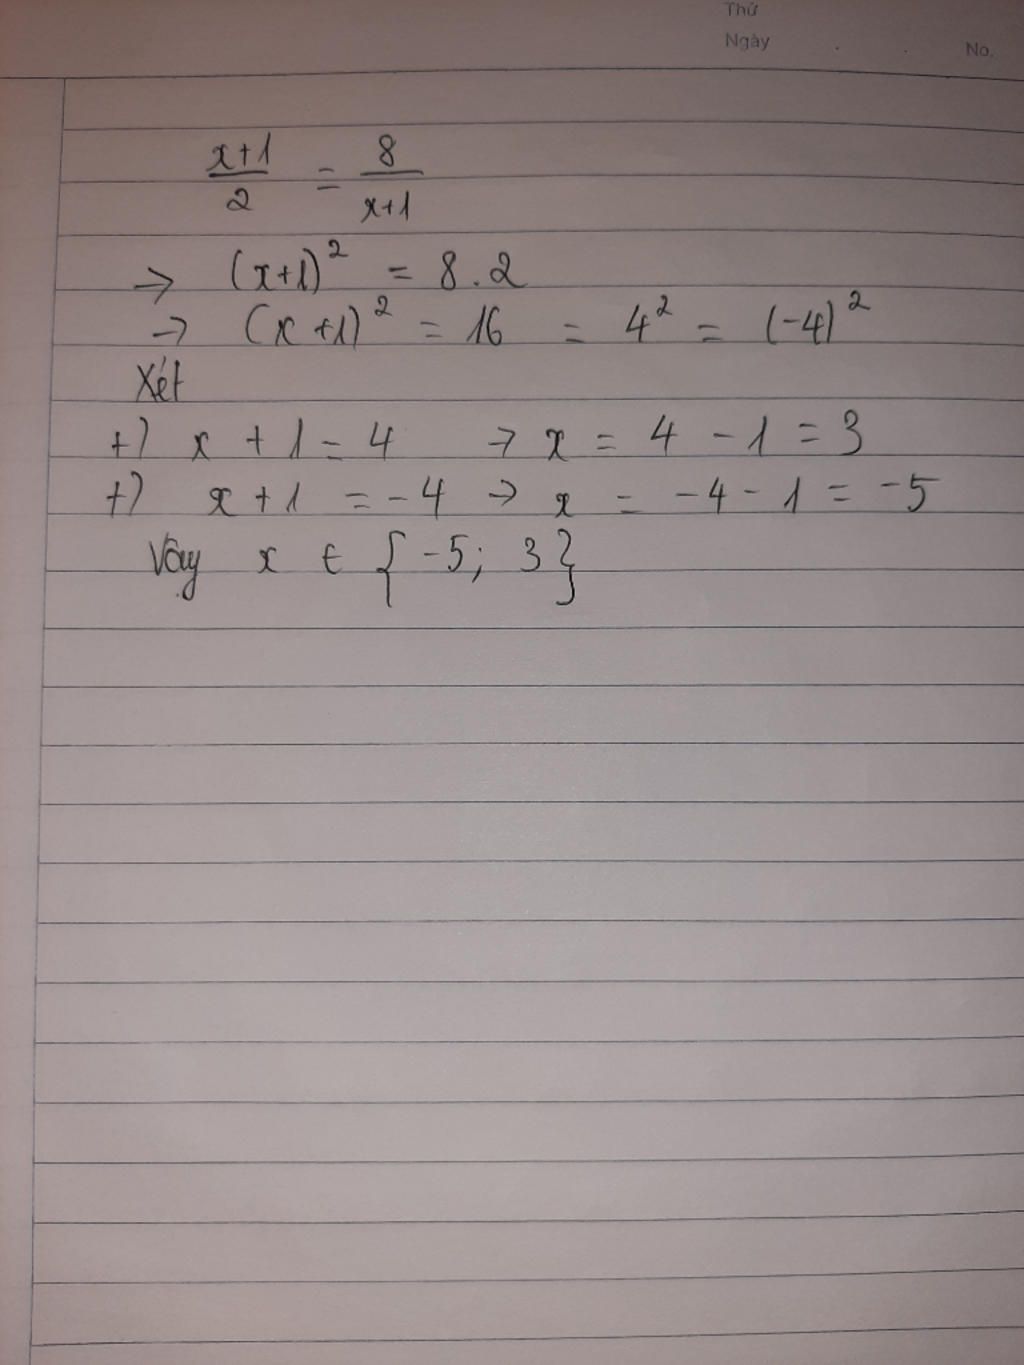 Thứ
Ngày . . No.
x+1/2 = 8/x+1
→ (x+1)² = 8.2
→ (x+1)² = 16 = 4² = (-4)²
Xét
+) x + 1 = 4 → x = 4 - 1 = 3
+) x+1 = -4 → x = -4 - 1 = -5
Vậy x ∈ {-5; 3}